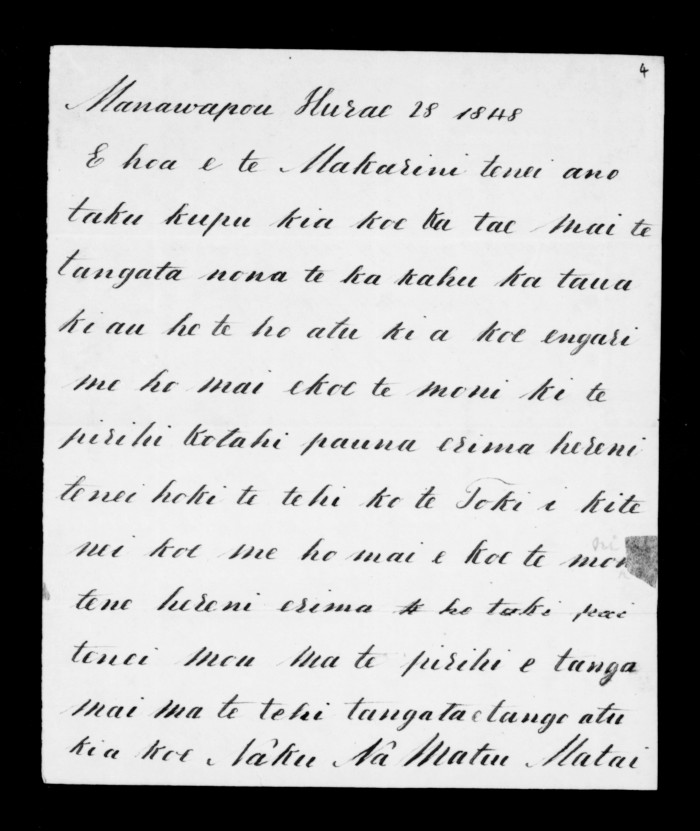 4
Manawapou Hurae 28 1848
E hoa e te Makarini tenei ano
taku kupu kia koe Ka tae mai te
tangata nona te ka kahu ka taua
ki au ho te ho atu ki a koe engari
me ho mai ekoe te moni ki te
pirihi kotahi pauna erima hereni
tenei hoki te tehi ko te Toki i kite
nei koe me ho mai e koe te mon
tene hereni erima he tuki pai
tenei mou ma te pirihi e tanga
mai ma te tehi tangata e tango atu
kia koe Nâku Nâ Matiu Matai